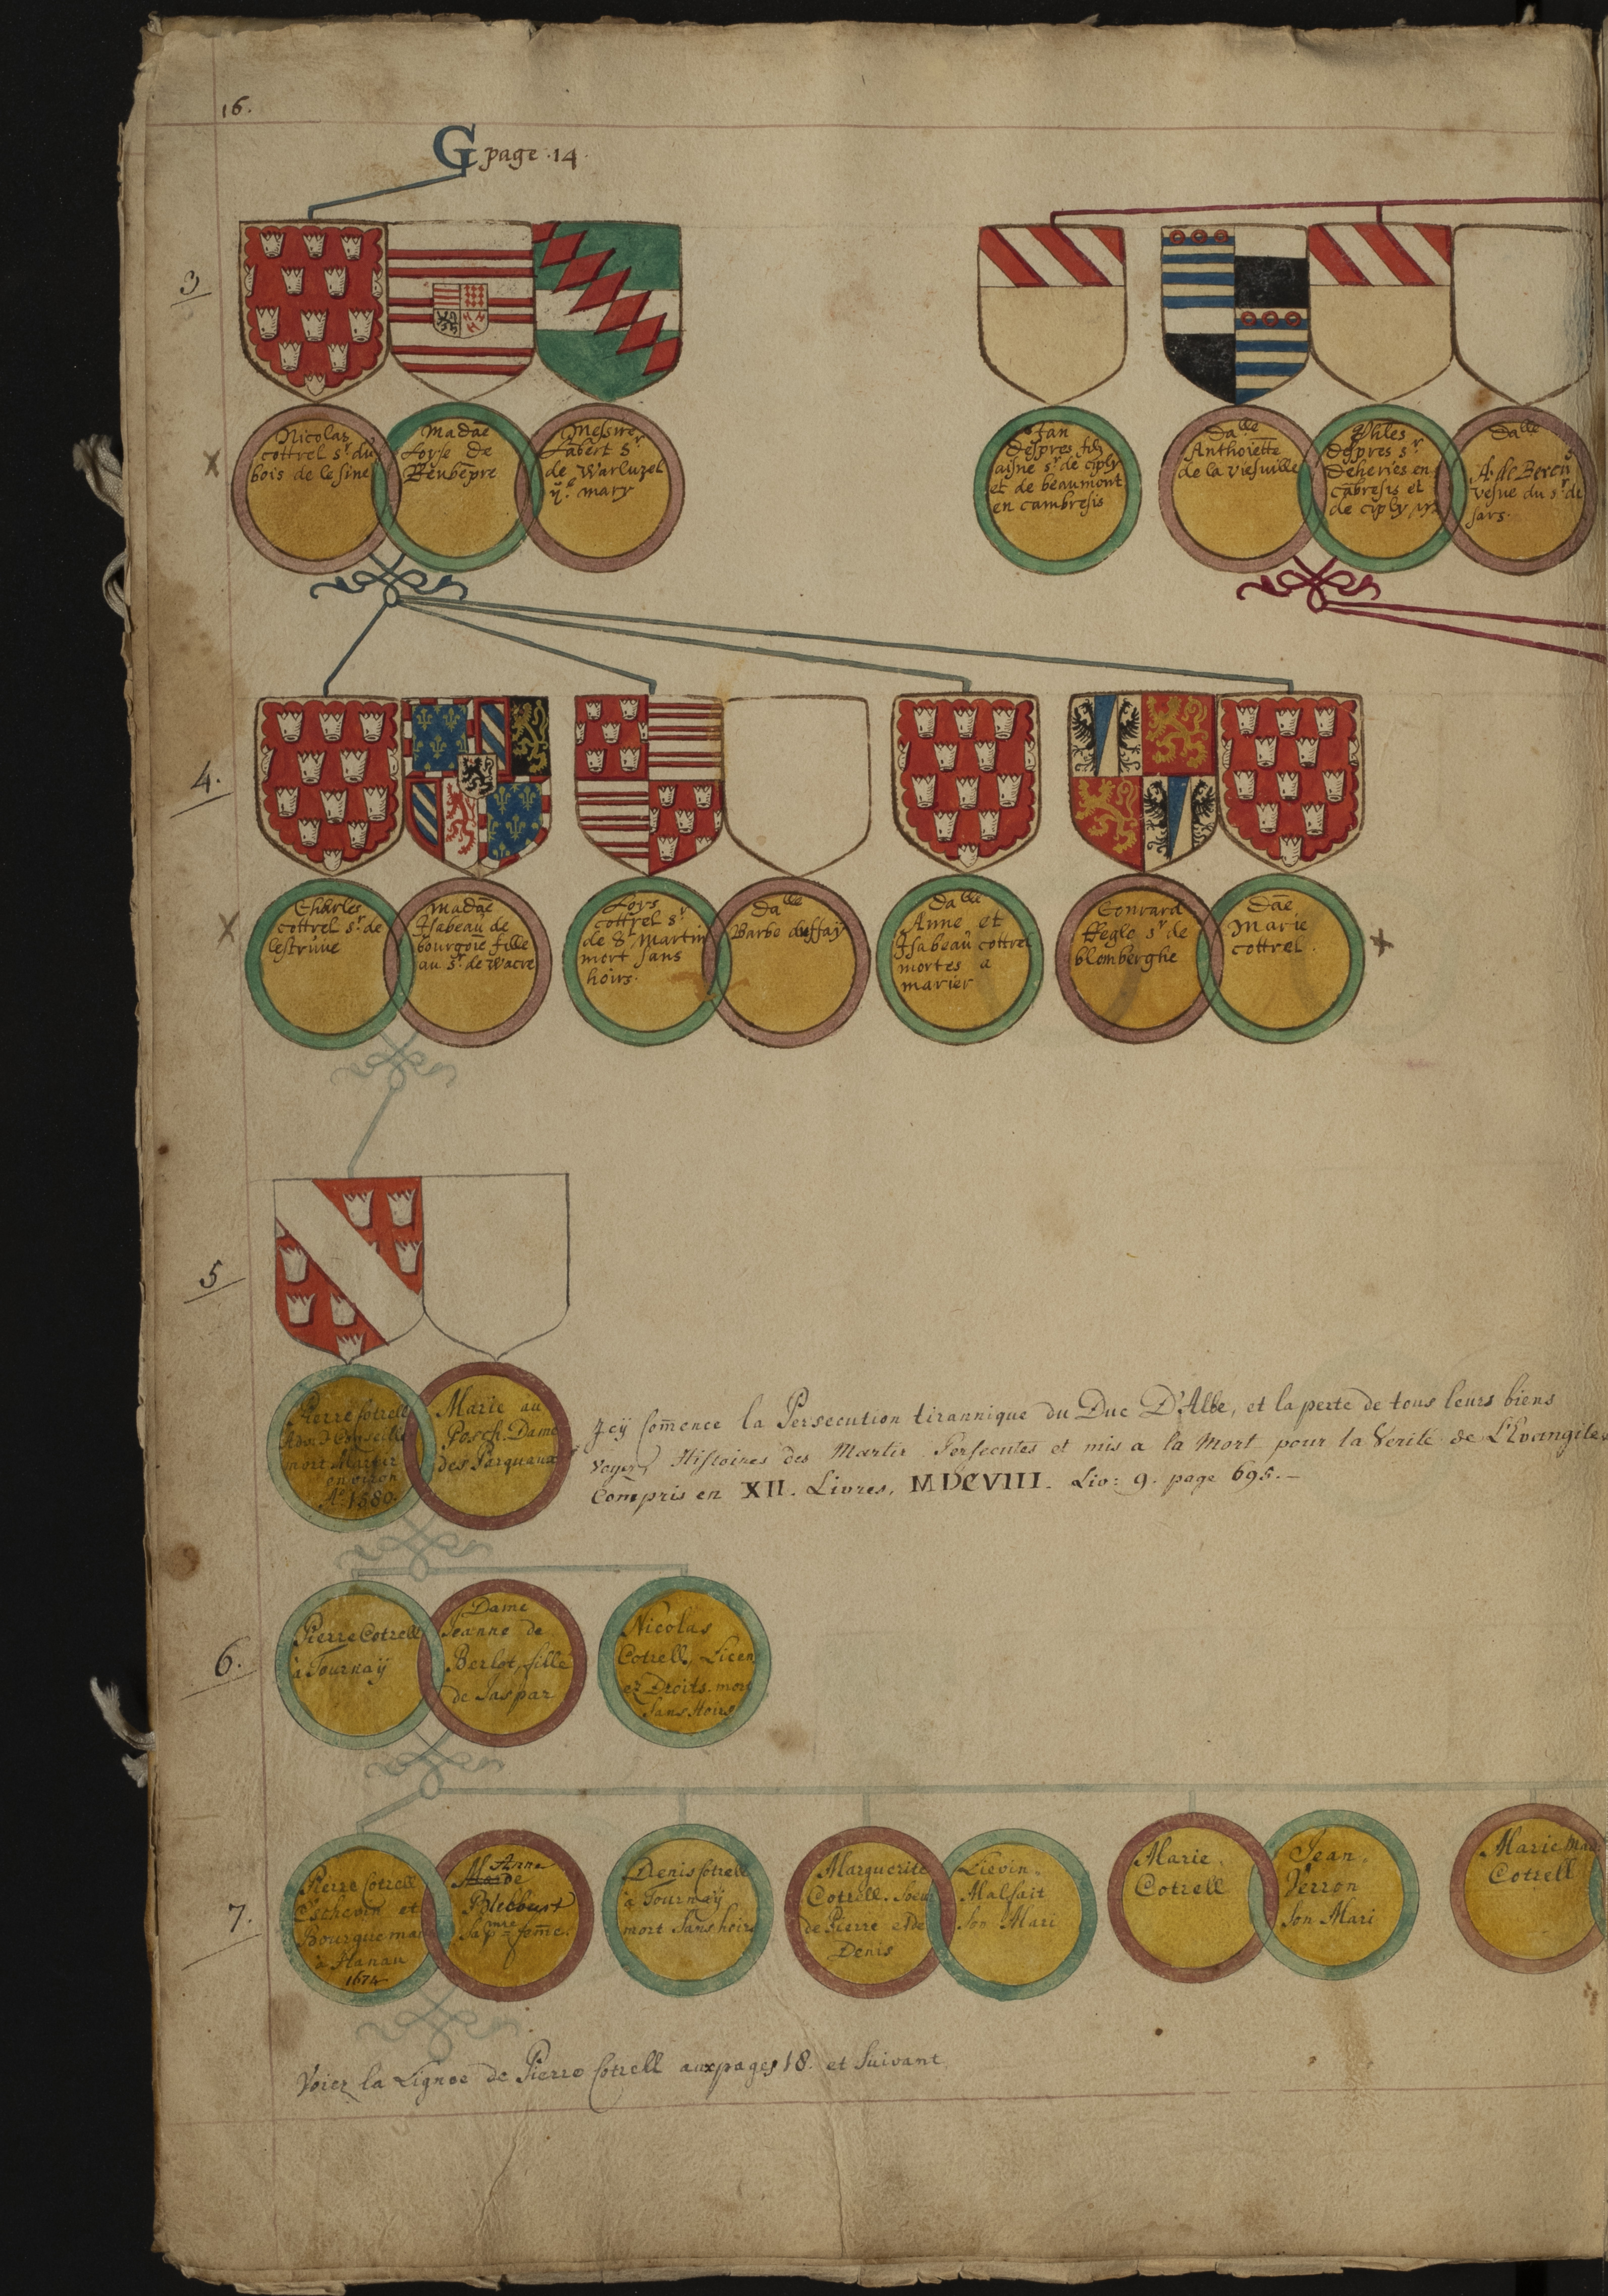 16.
G page .14.
3
Nicolas
cottrel sr. du
bois de lesine
Madae
Loyse de
Messire
Labert Sr.
de Warluzel
mary
Jan
despres filz
aisne sr. de ciply
et de beaumont
en cambresis
dalle
Anthoiette
de la viesuille
despres sr.
deheries en
cabresis et
de ciply
dalle
vesue du sr. de
sars.
4.
Charles
cottrel sr. de
lestruue
Madae
Isabeau de
bourgoie fille
au sr. de wacre
Loys
cottrel sr.
de St. Martin
mort sans
hoirs.
dalle
Barbe duffay
dalle
Anne et
Isabeau cottrel
mortes a
marier
Conrard
sr. de
blomberghe
dae
Marie
cottrel.
5
Pierre Cotrell
mort Martir
environ
Ao. 1580.
Marie au
Posch. Dame
des Parquaux
Icÿ comence la Persecution tirannique du Duc D'Albe, et la perte de tous leurs biens
voyez Histoires des Martir Persecutes et mis a la Mort pour la Verité de L'Evangile
Compris en XII. Livres. MDCVIII. Liv: 9. page 695.
6.
Pierre Cotrell
à Tournaÿ
Dame
Jeanne de
Berlot, fille
de Jaspar
Nicolas
Cotrell, Licen
ez Droits. mort
sans Hoirs
7.
Pierre Cotrell
Eschevin et
Bourguemai
à Hanau
1674
Anne
de
Sa pmre feme.
Denis Cotrell
à Tournaÿ
mort sans hoirs
Marguerite
Cotrell. Soeur
de Pierre et de
Denis
Lievin.
Malfait
Son Mari
Marie.
Cotrell
Jean.
Verron
Son Mari
Marie
Cotrell
Voiez la Lignee de Pierre Cotrell aux pages 18. et Suivant